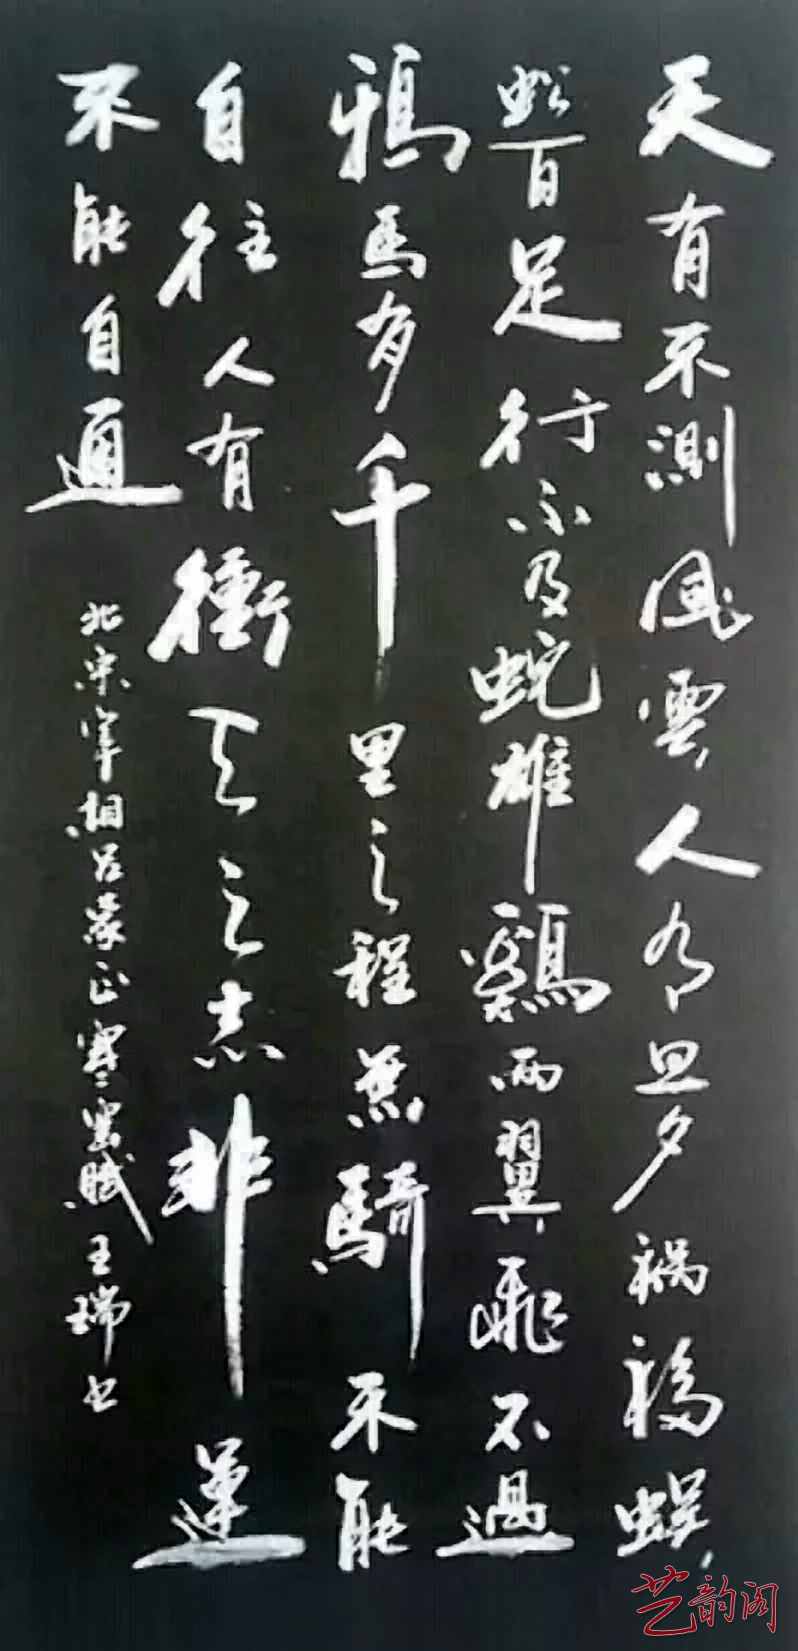 天有不測風雲人有旦夕禍福蜈
蚣百足行不及蛇雄鷄兩翼飛不過
鴉馬有千里之程無騎不能
自往人有衝天之志非運
不能自通
北宋宰相呂蒙正寒窑賦王瑞书
艺韵阁